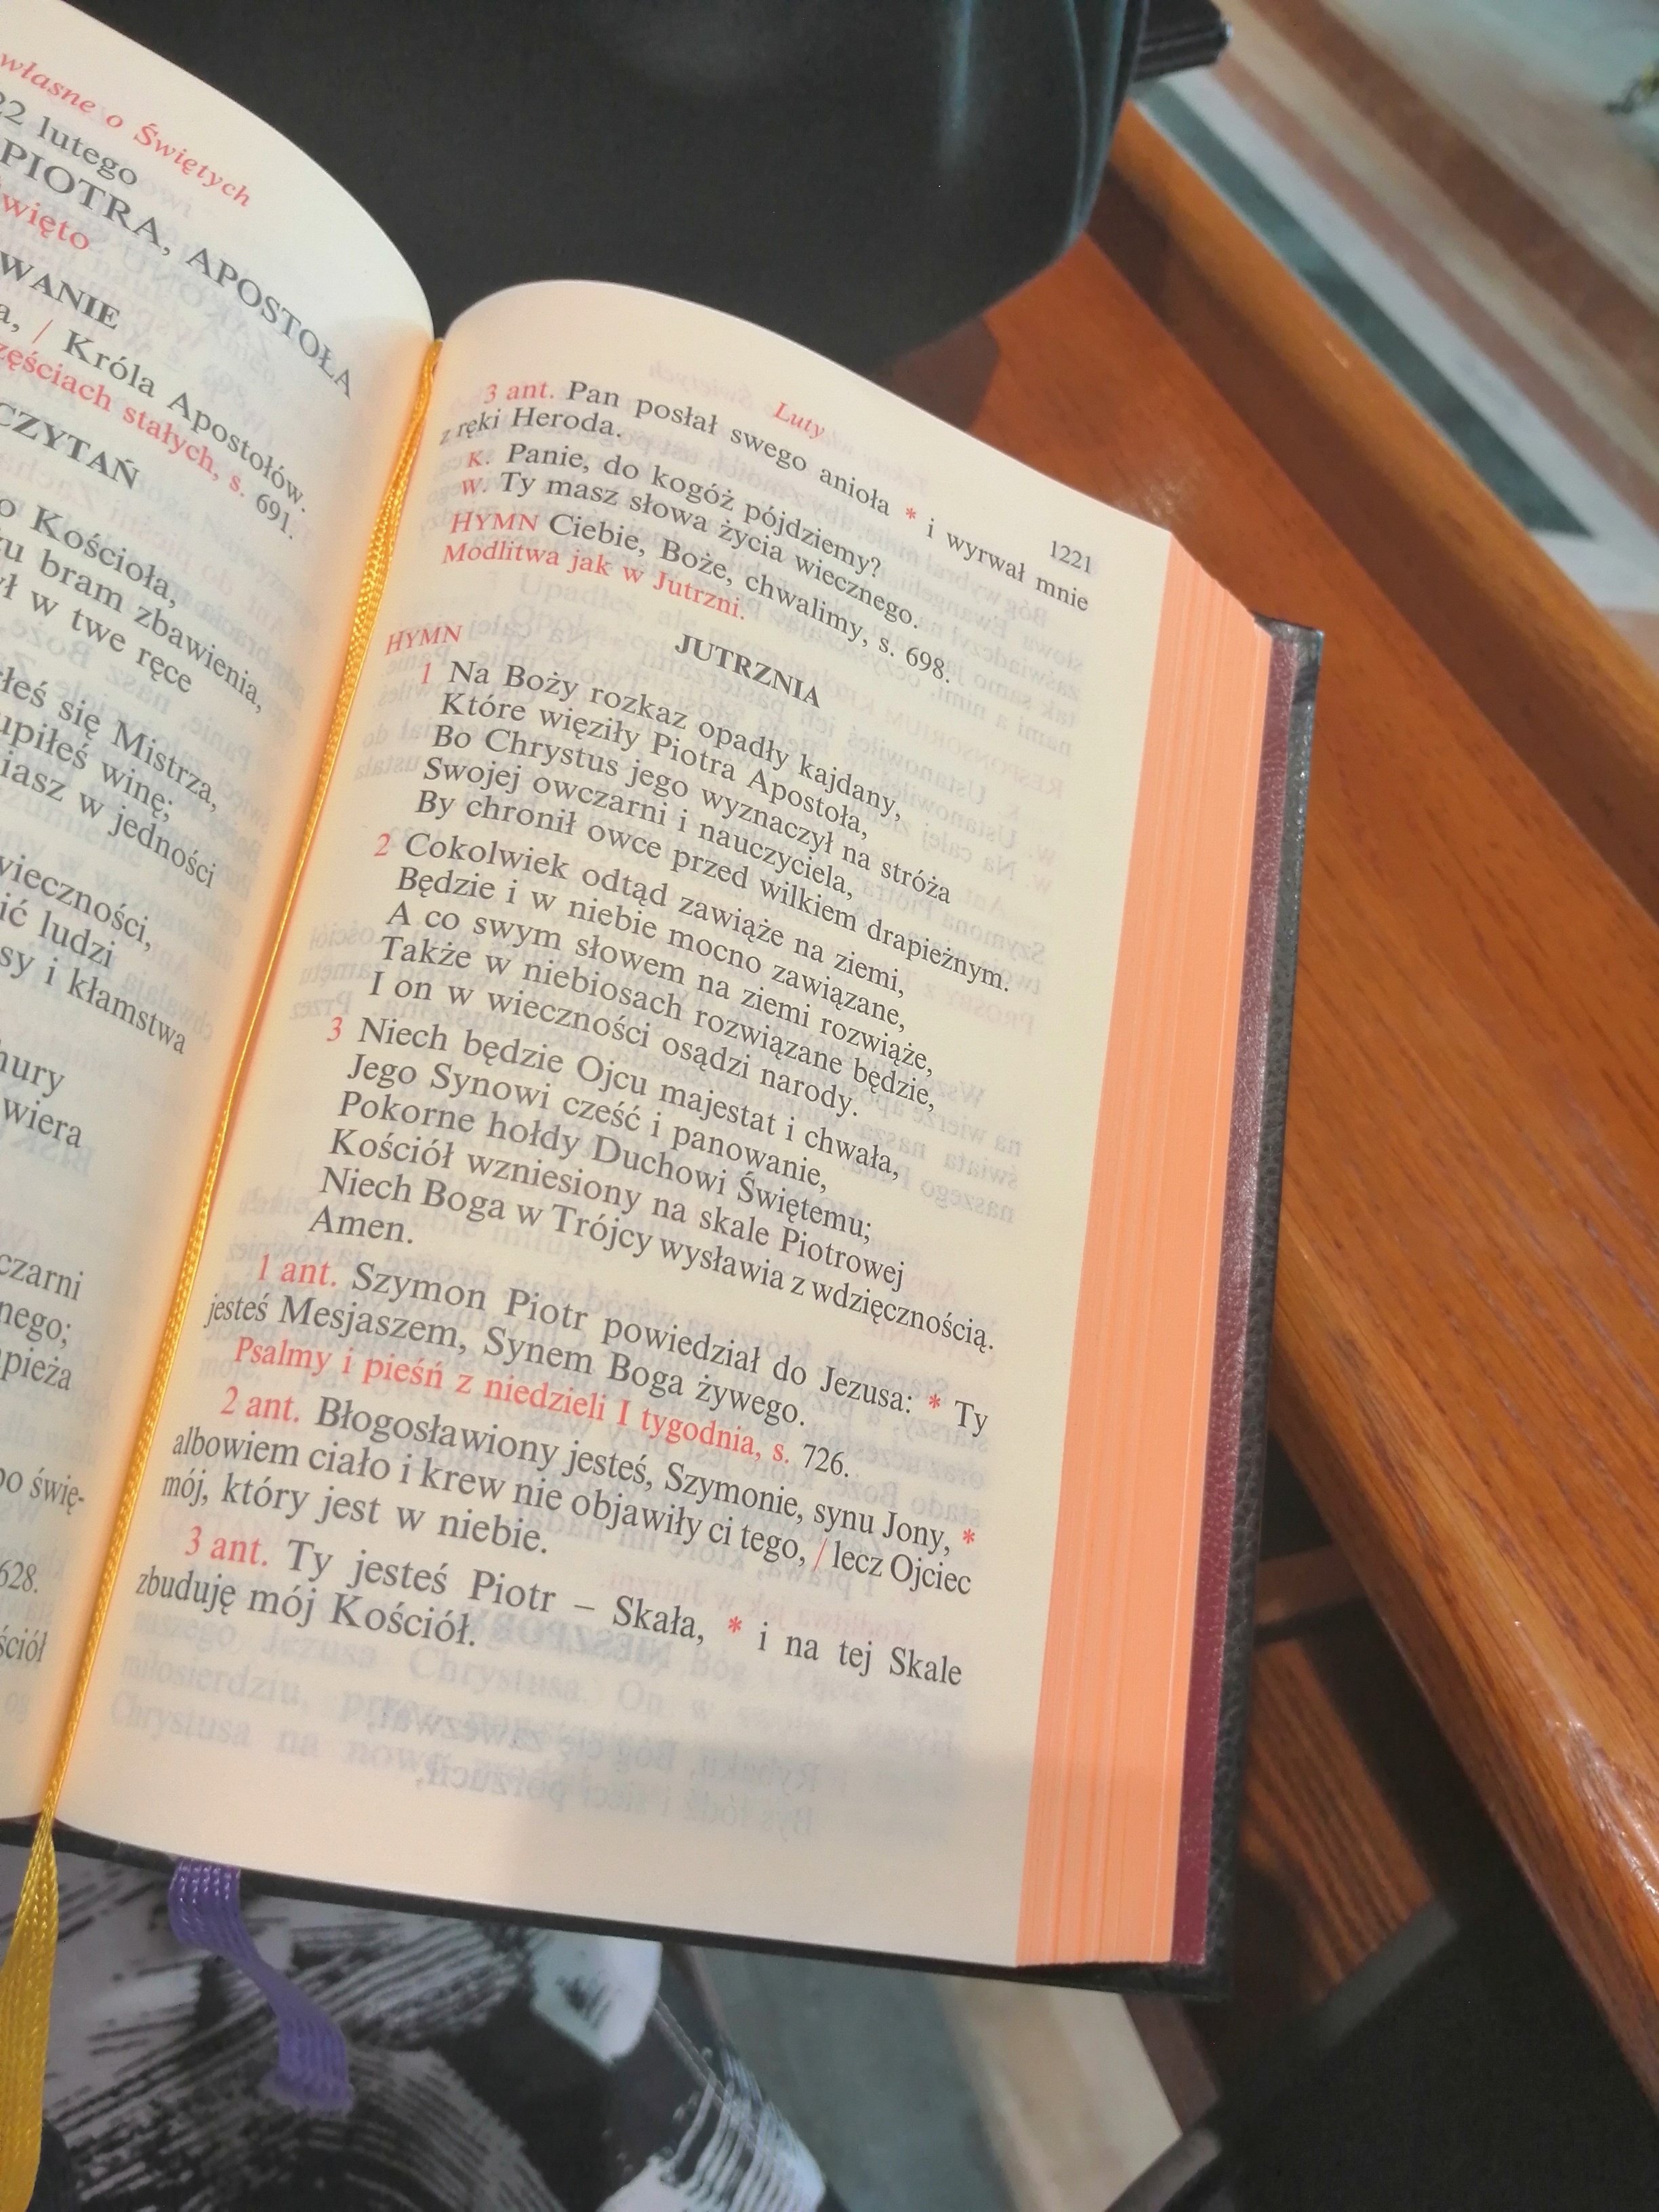 własne o Świętych
22 lutego
PIOTRA, APOSTOŁA
WANIE
/ Króla Apostołów.
stałych, s. 691.
CZYTAŃ
Kościoła,
bram zbawienia,
w twe ręce
się Mistrza,
winę;
w jedności
ludzi
i kłamstwa
628.
Luty
1221
3 ant. Pan posłał swego anioła * i wyrwał mnie
z ręki Heroda.
K. Panie, do kogóż pójdziemy?
W. Ty masz słowa życia wiecznego.
HYMN Ciebie, Boże, chwalimy, s. 698.
Modlitwa jak w Jutrzni.
JUTRZNIA
HYMN
1 Na Boży rozkaz opadły kajdany,
Które więziły Piotra Apostoła,
Bo Chrystus jego wyznaczył na stróża
Swojej owczarni i nauczyciela,
By chronił owce przed wilkiem drapieżnym.
2 Cokolwiek odtąd zawiąże na ziemi,
Będzie i w niebie mocno zawiązane,
A co swym słowem na ziemi rozwiąże,
Także w niebiosach rozwiązane będzie,
I on w wieczności osądzi narody.
3 Niech będzie Ojcu majestat i chwała,
Jego Synowi cześć i panowanie,
Pokorne hołdy Duchowi Świętemu;
Kościół wzniesiony na skale Piotrowej
Niech Boga w Trójcy wysławia z wdzięcznością.
Amen.
1 ant. Szymon Piotr powiedział do Jezusa: * Ty
jesteś Mesjaszem, Synem Boga żywego.
Psalmy i pieśń z niedzieli I tygodnia, s. 726.
2 ant. Błogosławiony jesteś, Szymonie, synu Jony, *
albowiem ciało i krew nie objawiły ci tego, / lecz Ojciec
mój, który jest w niebie.
3 ant. Ty jesteś Piotr – Skała, * i na tej Skale
zbuduję mój Kościół.